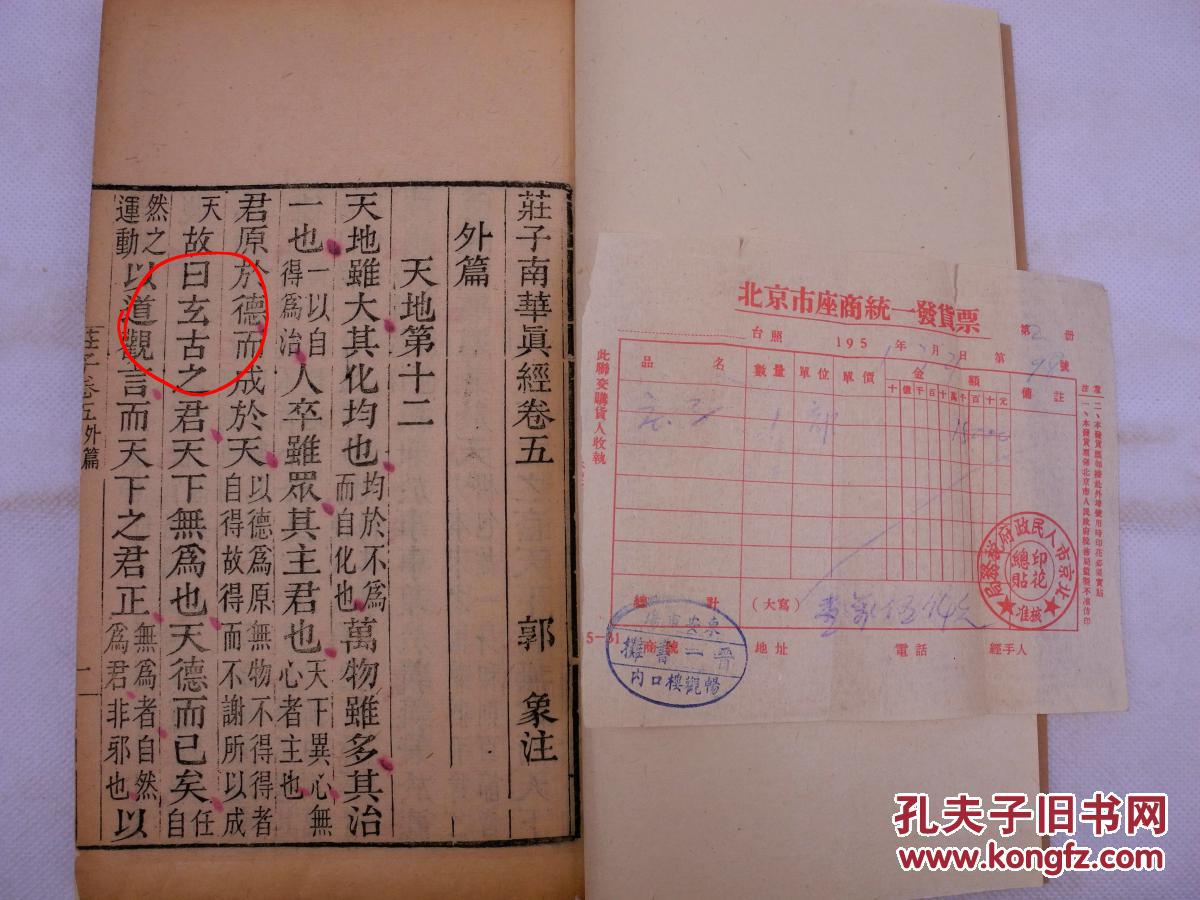 莊子南華眞經卷五
郭 象注
外篇
天地第十二
天地雖大其化均也均於不爲而自化也萬物雖多其治
一也一以自得爲治人卒雖眾其主君也天下異心無心者主也
君原於德而成於天以德爲原無物不得得者自得故得而不謝所以成
天故曰玄古之君天下無爲也天德而已矣任自
然之運動以道觀言而天下之君正無爲者自然爲君非邪也以
莊子卷五外篇
一
北京市座商統一發貨票
第2册
台照
195 年 月 日
第 號
品名
數量
單位
單價
金額
十億千百十萬千百十元
備註
1 部
總計
(大寫)
5-31
商號
地址
電話
經手人
此聯交購貨人收執
注 一、本發貨票係北京市人民政府稅務局監製不准仿印
北京市人民政府稅務局
印花總貼
核准
東安市場
晉一書攤
暢觀樓口內
孔夫子旧书网
www.kongfz.com